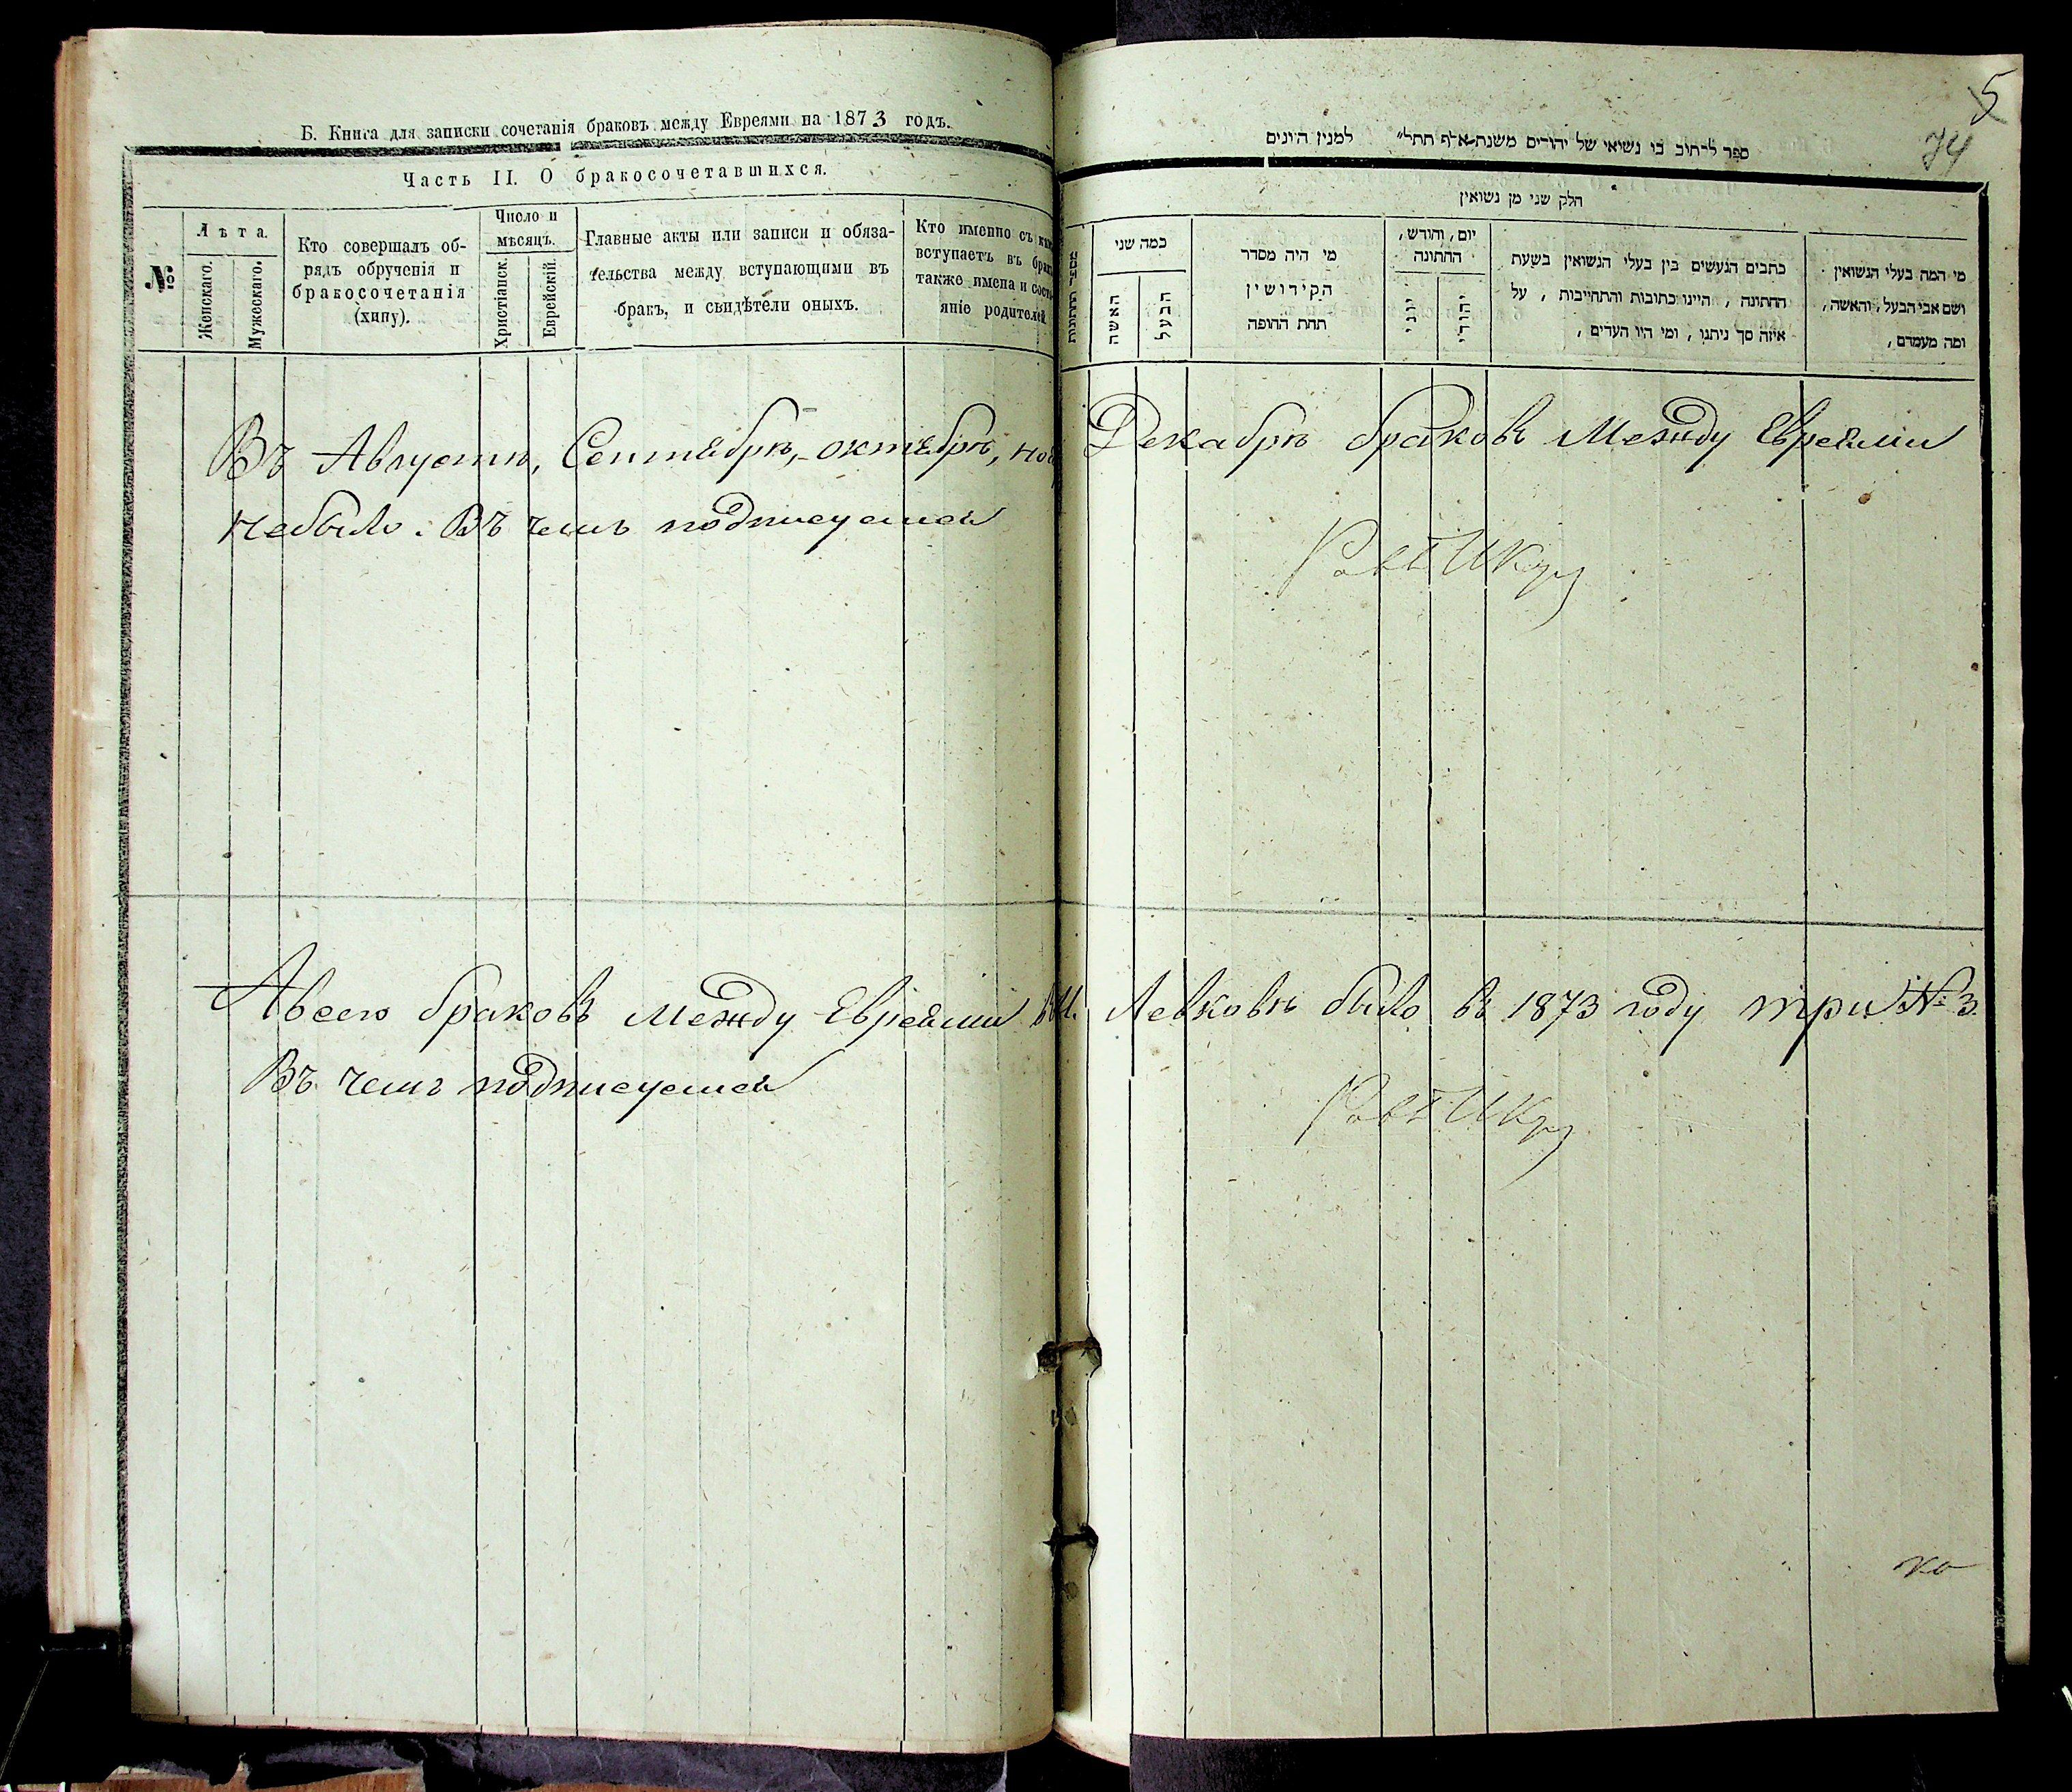 Б. Книга для записки сочетанія браковъ между Евреями на 1873 годъ.
Часть II. О бракосочетавшихся.
№
Лѣта.
Женскаго.
Мужескаго.
Кто совершалъ об-
рядъ обрученія и
бракосочетанія
(хипу).
Число и
мѣсяцъ.
Христіанск.
Еврейскій.
Главные акты или записи и обяза-
тельства между вступающими въ
бракъ, и свидѣтели оныхъ.
Кто именно съ
вступаетъ въ
также имена и
яніе родителей
Въ Августѣ, Сентебрѣ, октебрѣ,
небыло. Въ чемъ подписуемся
Авсего браковъ Между Евреями
Въ чемъ подписуемся
5
74
ספר לכתוב בו נשואי של יהודים משנת אלף תתל״ למנין היונים
חלק שני מן נשואין
כמה שני
האשה
הבעל
מי היה מסדר
הקידושין
תחת החופה
יום, וחודש,
החתונה
יוני
יהודי
כתבים הנעשים בין בעלי הנשואין בשעת
החתונה, היינו כתובות והתחייבות, על
איזה סך ניתנו, ומי היו העדים,
מי המה בעלי הנשואין
ושם אבי הבעל, והאשה,
ומה מעמדם,
Декабрѣ браковъ Между Евреями
Левковѣ было въ 1873 году три № 3.